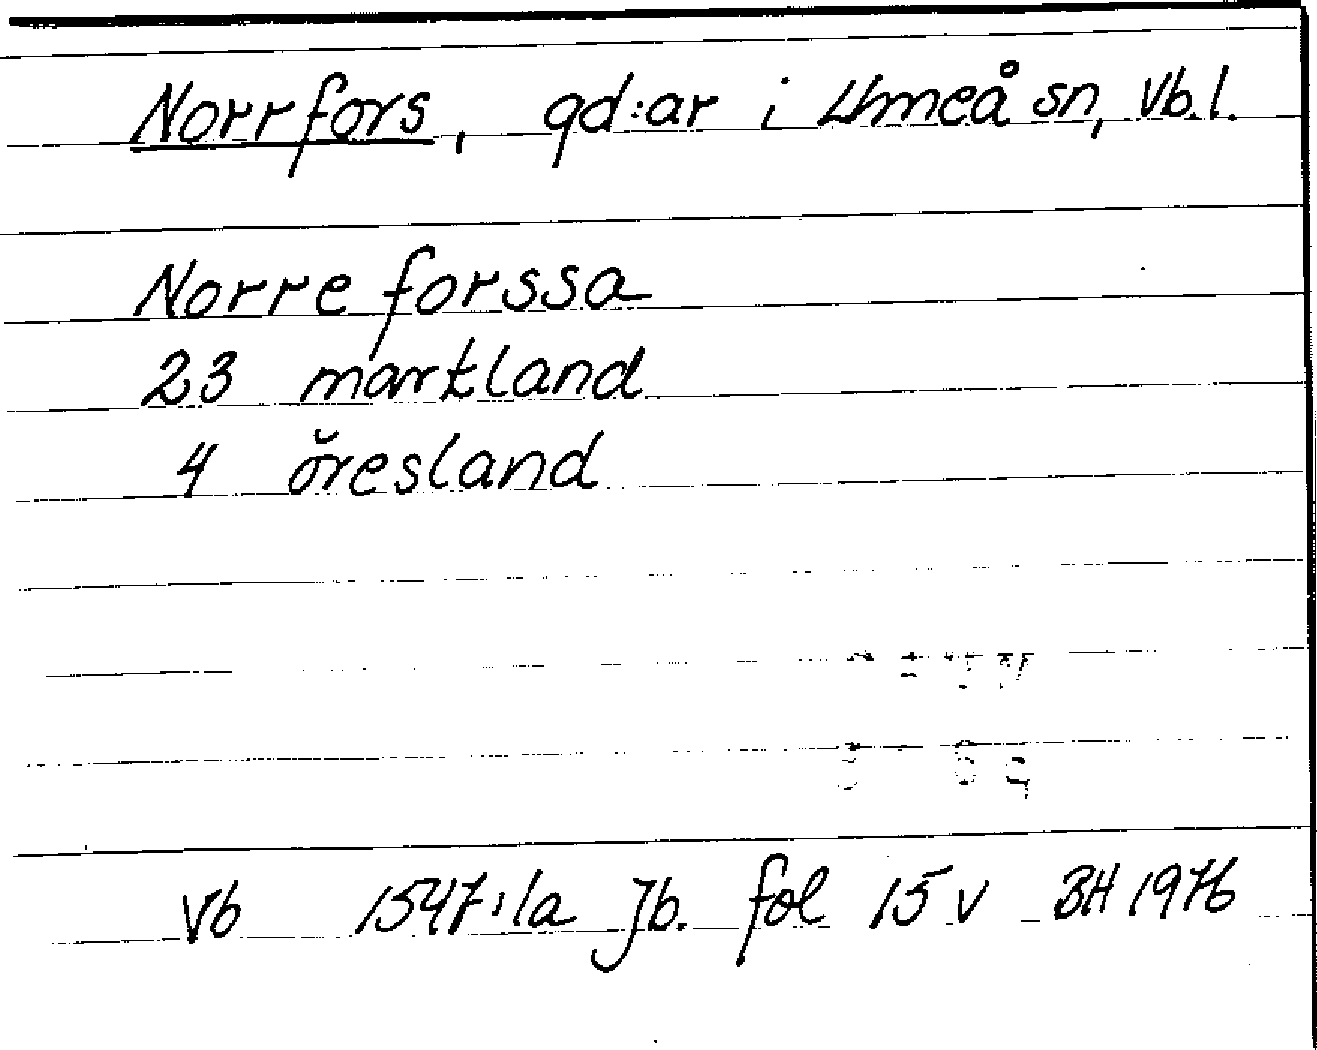 Norrfors, gd:ar i Umeå sn, Vb.l.
Norre forssa
23 markland
4 öresland
Vb 1547:1a Jb. fol 15 v BH 1976